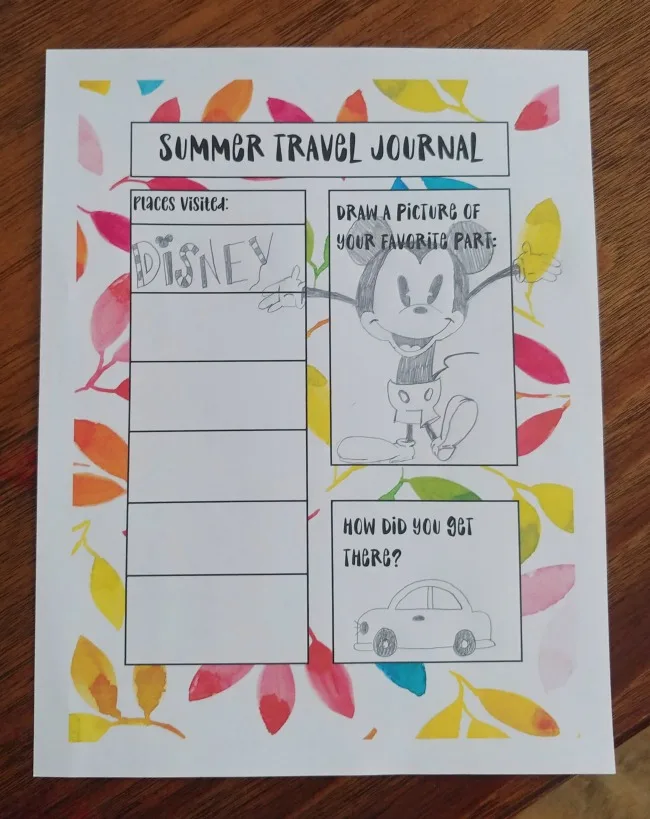 SUMMER TRAVEL JOURNAL
PLACES VISITED:
DISNEY
DRAW A PICTURE OF
YOUR FAVORITE PART:
HOW DID YOU GET
THERE?